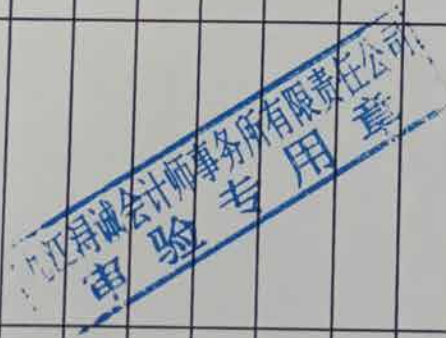 九江浔诚会计师事务所有限责任公司
审验专用章